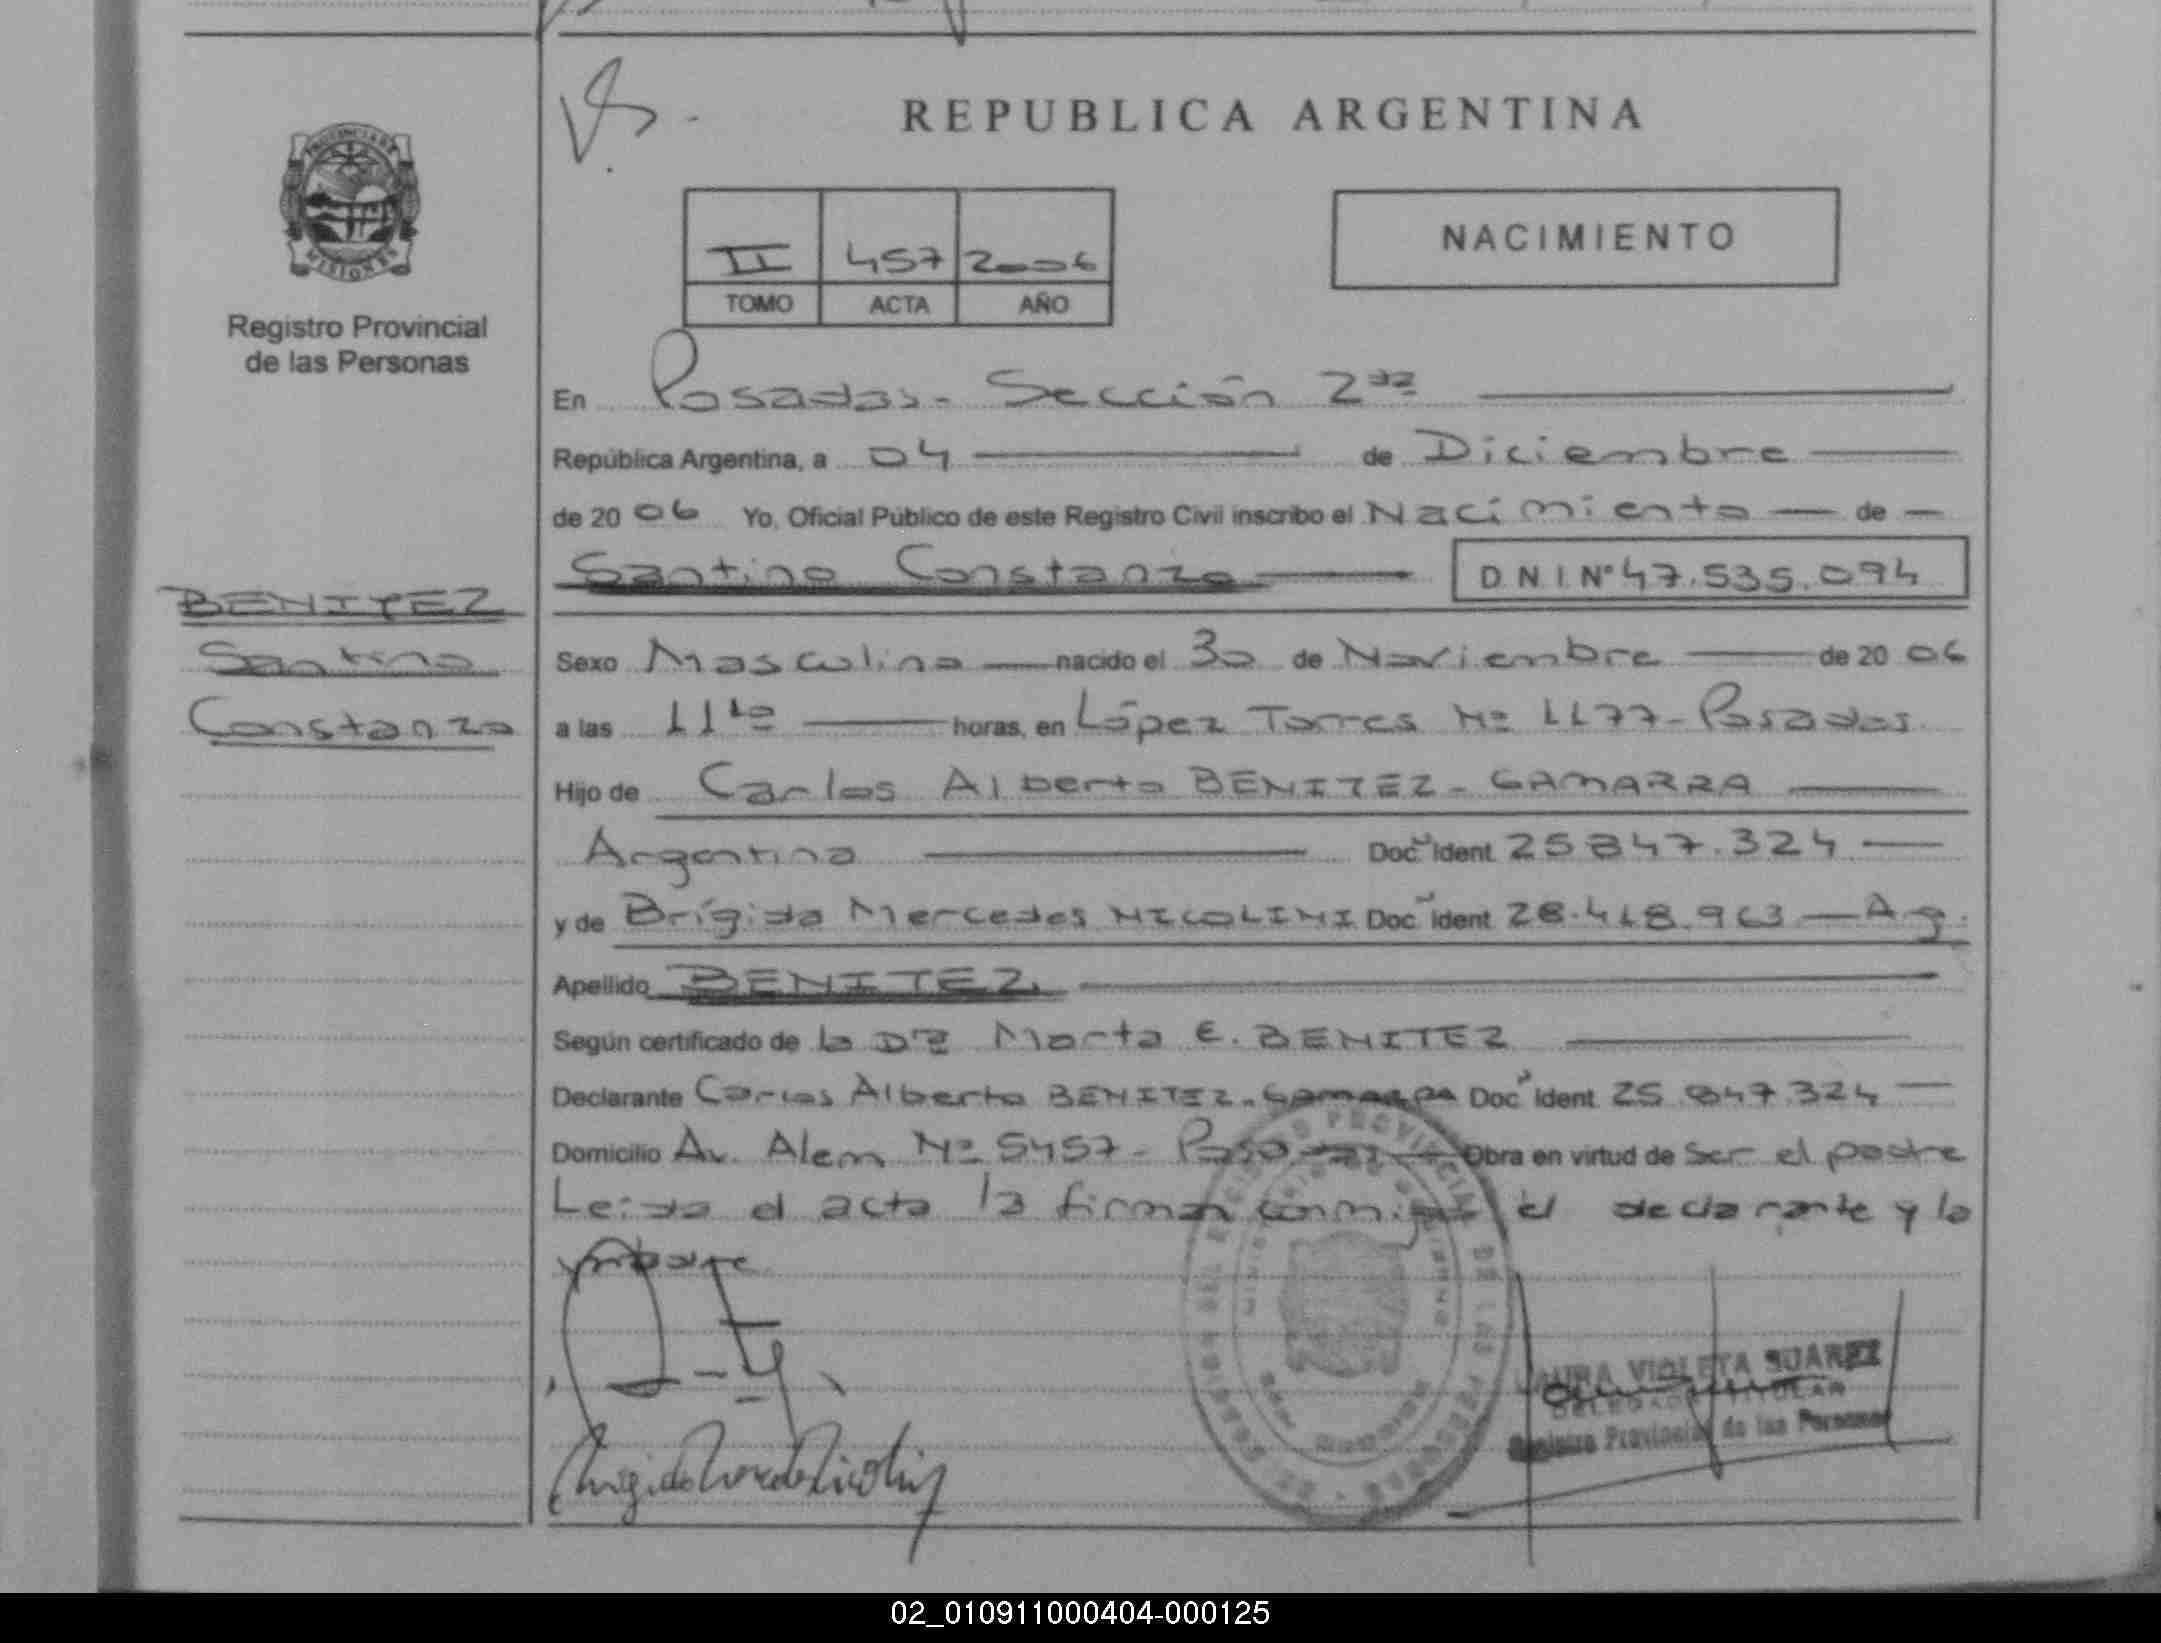 REPUBLICA ARGENTINA
PROVINCIA DE
MISIONES
Registro Provincial
de las Personas
NACIMIENTO
II 457 2006
TOMO ACTA AÑO
En Posadas - Sección 2da
República Argentina, a 04 de Diciembre
de 2006 Yo, Oficial Público de este Registro Civil inscribo el Nacimiento de
Santino Constanzo D.N.I.Nº 47.535.094
BENITEZ
Santino
Constanzo
Sexo Masculino nacido el 30 de Noviembre de 2006
a las 11 horas, en López Torres Nº 1177 - Posadas
Hijo de Carlos Alberto BENITEZ - GAMARRA
Argentino Doc. Ident 25847.324
y de Brígida Mercedes NICOLINI Doc. Ident 28.418.963 Ag.
Apellido BENITEZ
Según certificado de la Dra Marta E. BENITEZ
Declarante Carlos Alberto BENITEZ - GAMARRA Doc. Ident 25.847.324
Domicilio Av. Alem Nº 5457 - Posadas Obra en virtud de Ser el padre
Leída el acta la firman conmigo el declarante y la
madre
LAURA VIOLETA SUAREZ
DELEGADA TITULAR
Registro Provincial de las Personas
02_010911000404-000125